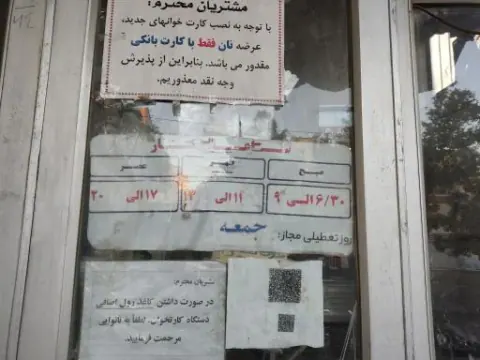 مشتریان محترم:
با توجه به نصب کارت خوانهای جدید،
عرضه نان فقط با کارت بانکی
مقدور می باشد. بنابراین از پذیرش
وجه نقد معذوریم.
ساعت کار
صبح ظهر عصر
۶/۳۰ الی ۹ ۱۱ الی ۱۷ الی ۲۰
روز تعطیلی مجاز: جمعه
مشتریان محترم:
در صورت داشتن کاغذ رول اضافی
دستگاه کارتخوان، لطفاً به نانوایی
مرحمت فرمایید.